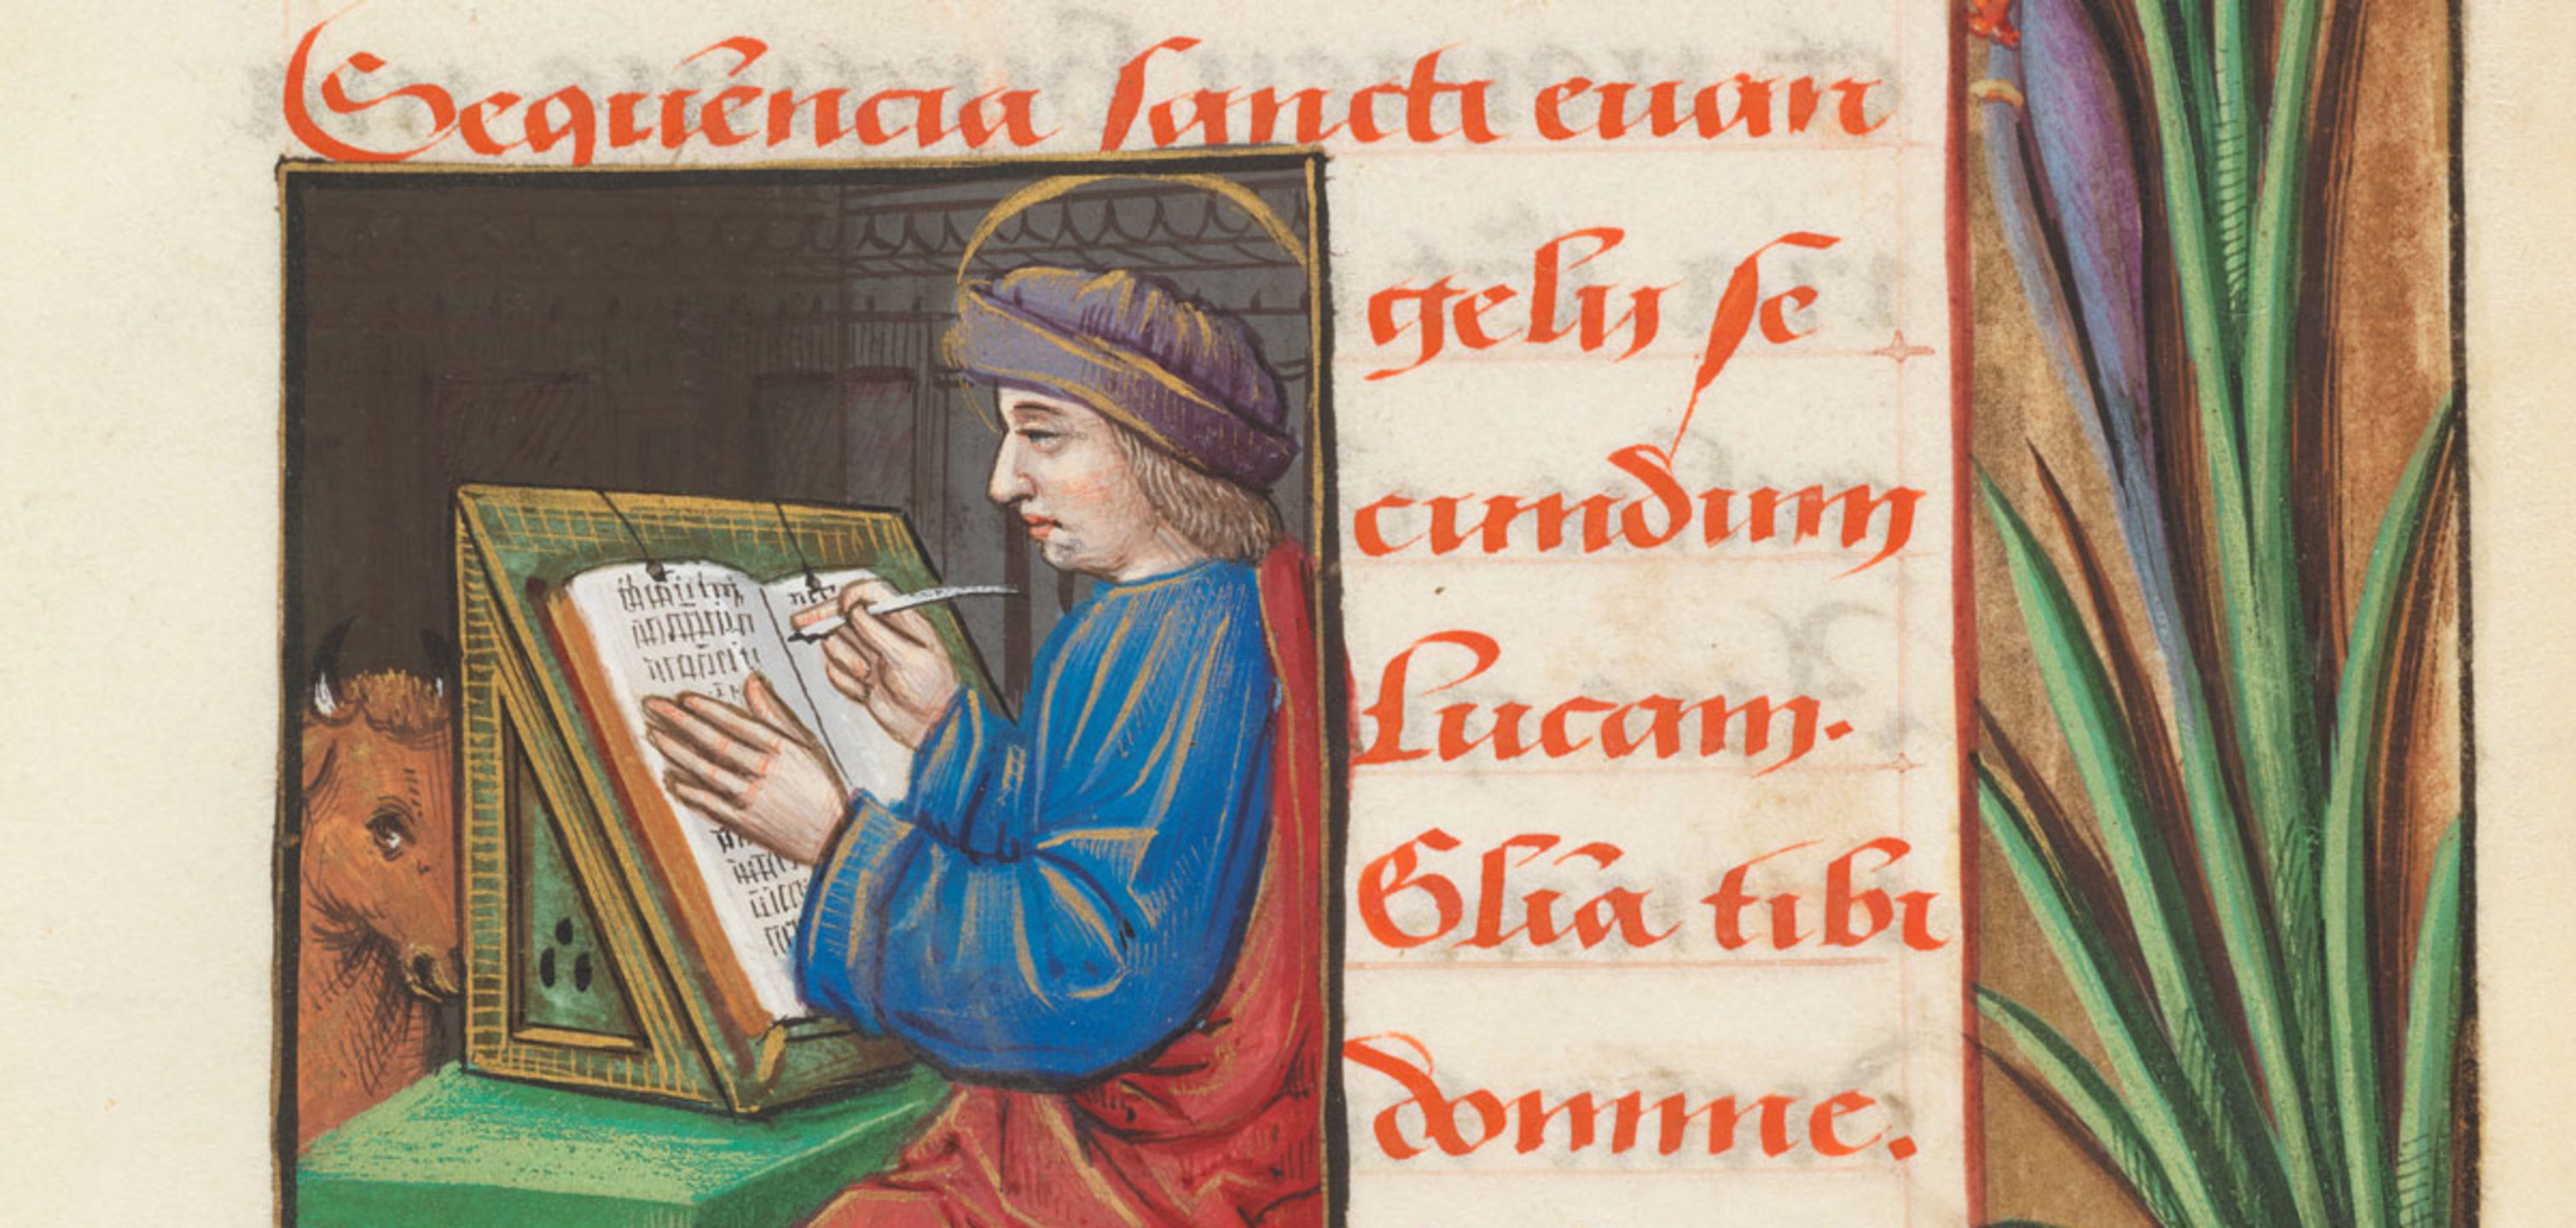 Sequēncia sancti euan
gelij se
cundum
Lucam.
Glīa tibi
domine.